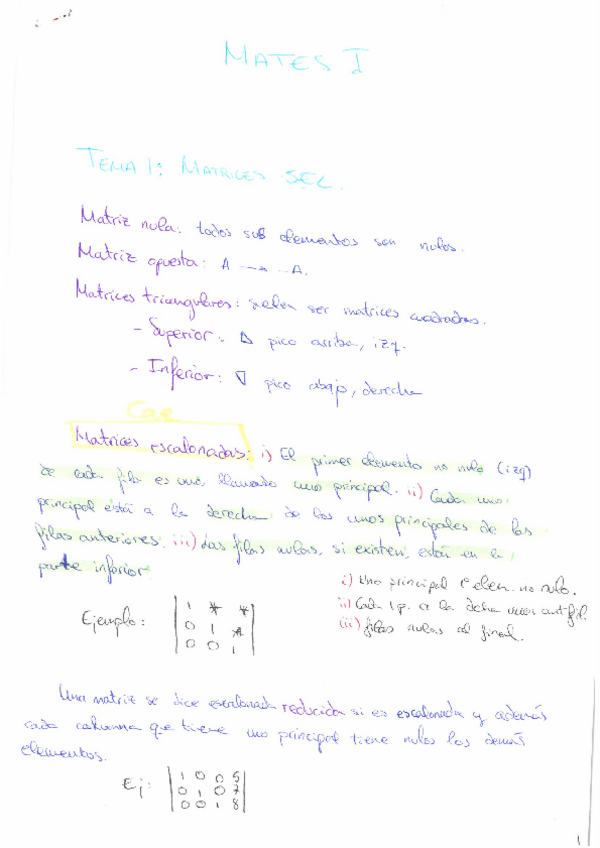 MATES I
TEMA 1: MATRICES SEL.
Matriz nula: todos sus elementos son nulos.
Matriz opuesta: A → -A.
Matrices triangulares: suelen ser matrices cuadradas.
- Superior: pico arriba, izq.
- Inferior: pico abajo, derecha
Cae
Matrices escalonadas: i) El primer elemento no nulo (izq)
de cada fila es uno, llamado uno principal. ii) Cada uno
principal está a la derecha de los unos principales de las
filas anteriores. iii) Las filas nulas, si existen, están en la
parte inferior
i) Uno principal 1º elem. no nulo.
ii) Cada 1 p. a la dcha unos ant. fil.
iii) filas nulas al final.
Ejemplo:
1 * *
0 1 *
0 0 1
Una matriz se dice escalonada reducida si es escalonada y además
cada columna que tiene uno principal tiene nulos los demás
elementos.
Ej:
1 0 0 5
0 1 0 7
0 0 1 8
1